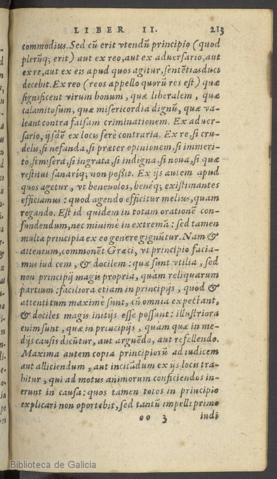 LIBER II. 213
commodius. Sed cũ erit vtendũ principio (quod
plerũq; erit) aut ex reo, aut ex aduersario, aut
ex re, aut ex eis apud quos agitur, sentẽtias ducere
decebit. Ex reo (reos appello quorũ res est) quæ
significent virum bonum, quæ liberalem, quæ
calamitosum, quæ misericordia dignũ, quæ va-
leant contra falsam criminationem. Ex aduer-
sario, ijsdẽ ex locis ferè contraria. Ex re, si cru-
delis, si nefanda, si præter opinionem, si immeri-
to, si misera, si ingrata, si indigna, si noua, si quæ
restitui sanariq; non possit. Ex ijs autem apud
quos agetur, vt beneuolos, beneq; existimantes
efficiamus: quod agendo efficitur melius, quam
rogando. Est id quidem in totam orationẽ con-
fundendum, nec minimè in extremã: sed tamen
multa principia ex eo genere gignũtur. Nam &
attentum, commonẽt Græci, vt principio facia-
mus iudicem, & docilem: quæ sunt vtilia, sed
non principij magis propria, quàm reliquarum
partium: faciliora etiam in principijs, quòd &
attenti tum maximè sunt, cũ omnia expectant,
& dociles magis initijs esse possunt: illustriora
enim sunt, quæ in principijs, quàm quæ in me-
dijs causis dicũtur, aut arguẽdo, aut refellendo.
Maxima autem copia principiorũ ad iudicem
aut alliciendum, aut incitãdum ex ijs locis tra-
hitur, qui ad motus animorum conficiendos in-
erunt in causa: quos tamen totos in principio
explicari non oportebit, sed tantũ impelli primo
oo 3 iudi
Biblioteca de Galicia